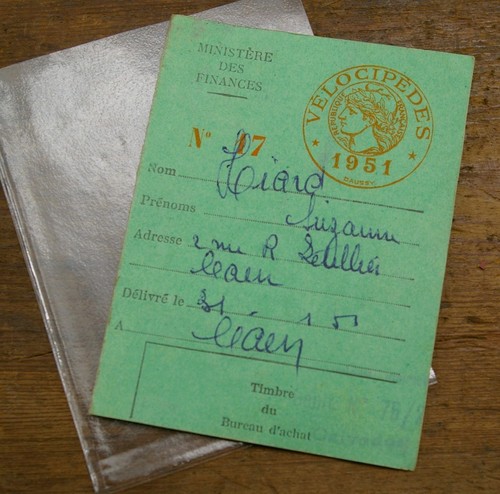 MINISTÈRE
DES
FINANCES
VÉLOCIPÈDES
RÉPUBLIQUE FRANÇAISE
1951
DAUSSY
N° 17
Nom Hiard
Prénoms Suzanne
Adresse 2 rue R
Caen
Délivré le 31 - 1 51
A Caen
Timbre
du
Bureau d'achat